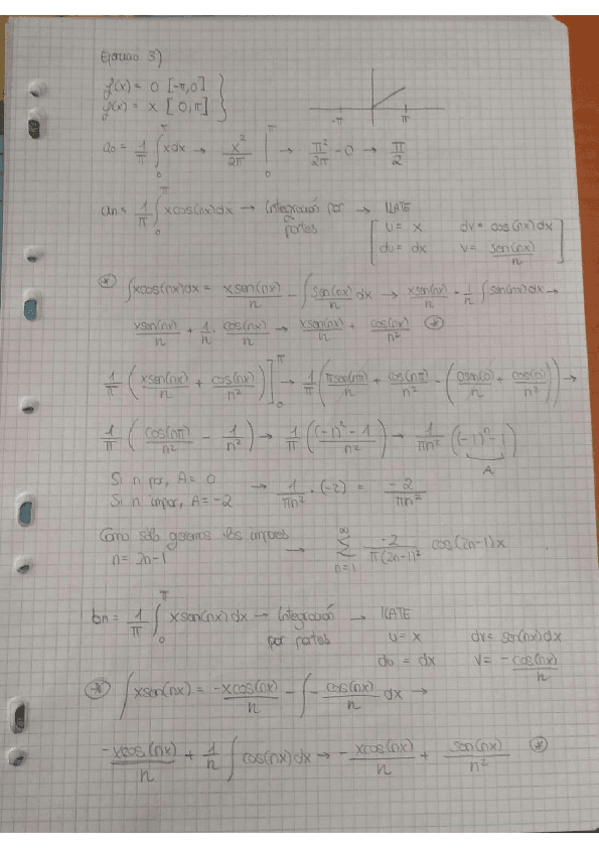 Ejercicio 3)
f(x) = 0 [-π,0]
f(x) = x [0,π]
-π π
a₀ = 1/π ∫₀^π xdx → x²/2π |₀^π → π²/2π - 0 → π/2
an = 1/π ∫₀^π xcos(nx)dx → Integración por partes → ILATE
u = x dv = cos(nx)dx
du = dx v = sen(nx)/n
* ∫xcos(nx)dx = xsen(nx)/n - ∫ sen(nx)/n dx → xsen(nx)/n - 1/n ∫ sen(nx)dx →
xsen(nx)/n + 1/n · cos(nx)/n → xsen(nx)/n + cos(nx)/n² *
1/π (xsen(nx)/n + cos(nx)/n²)]₀^π → 1/π (πsen(nπ)/n + cos(nπ)/n² - (0sen(0)/n + cos(0)/n²)) →
1/π (cos(nπ)/n² - 1/n²) → 1/π ((-1)ⁿ - 1/n²) → 1/πn² ((-1)ⁿ - 1)
A
Si n par, A = 0
Si n impar, A = -2 → 1/πn² · (-2) = -2/πn²
Como sólo queremos los impares
n = 2n-1 → ∑_{n=1}^∞ -2/π(2n-1)² cos(2n-1)x
bn = 1/π ∫₀^π xsen(nx)dx → Integración por partes → ILATE
u = x dv = sen(nx)dx
du = dx v = -cos(nx)/n
* ∫xsen(nx) = -xcos(nx)/n - ∫ -cos(nx)/n dx →
-xcos(nx)/n + 1/n ∫ cos(nx)dx → -xcos(nx)/n + sen(nx)/n² *